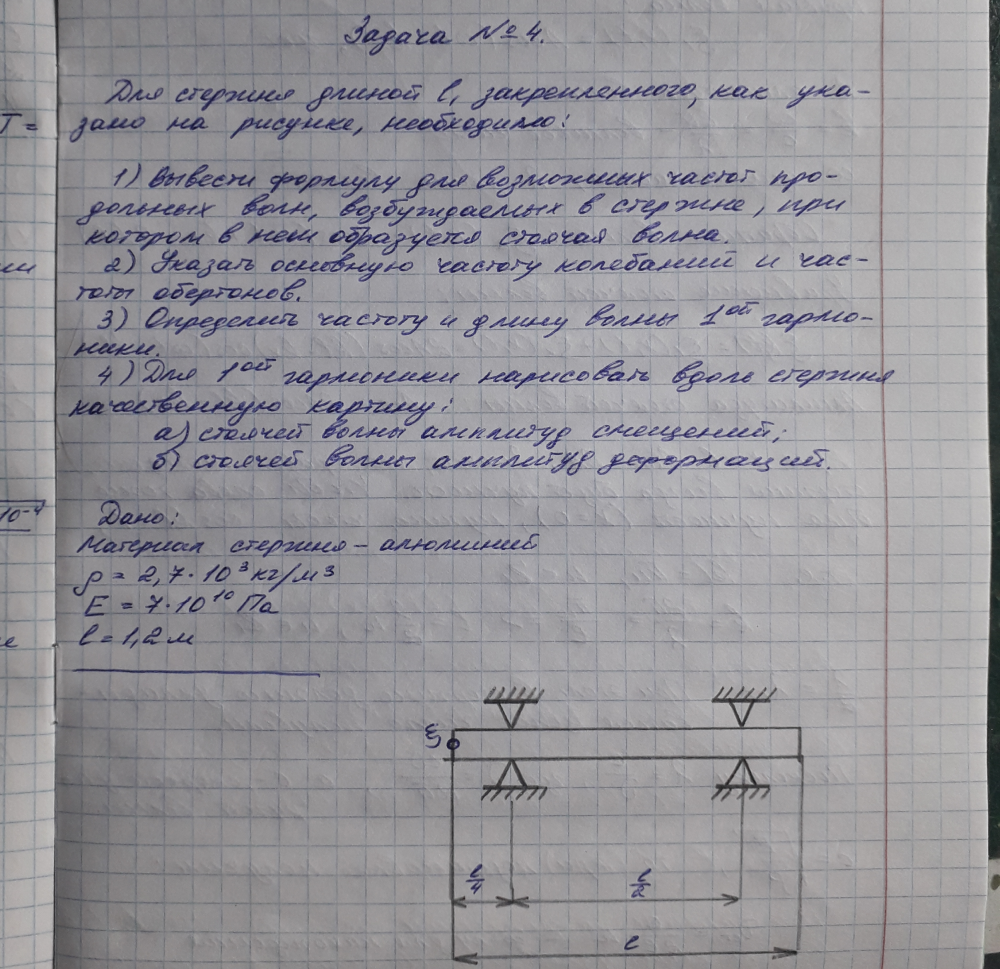 Задача № 4.
Для стержня длиной l, закрепленного, как ука-
T =
зано на рисунке, необходимо:
1) Вывести формулу для возможных частот про-
дольных волн, возбуждаемых в стержне, при
котором в нем образуется стоячая волна.
2) Указать основную частоту колебаний и час-
тоты обертонов.
3) Определить частоту и длину волны 1ой гармо-
ники.
4) Для 1ой гармоники нарисовать вдоль стержня
качественную картину:
а) стоячей волны амплитуд смещений;
б) стоячей волны амплитуд деформаций.
10⁻⁴
Дано:
Материал стержня – алюминий
ρ = 2,7·10³ кг/м³
E = 7·10¹⁰ Па
l = 1,2 м
ξ
l/4
l/2
l